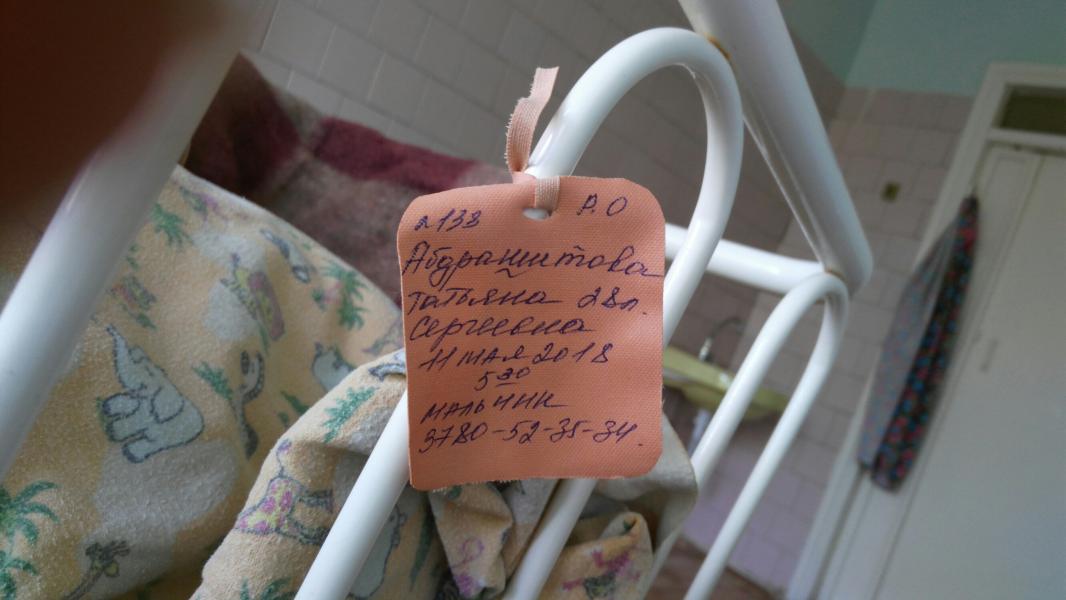 л133 Р.О
Абдрашитова
Татьяна 28л.
Сергеевна
11 мая 2018
5 30
мальчик
3780-52-35-34.